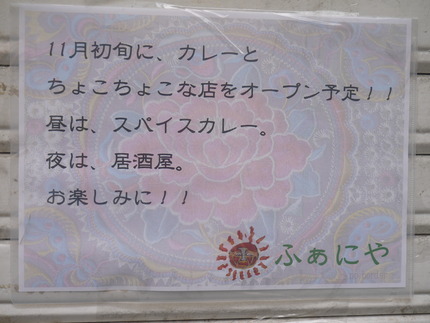 11月初旬に、カレーと
ちょこちょこな店をオープン予定！！
昼は、スパイスカレー。
夜は、居酒屋。
お楽しみに！！
ふぁにや